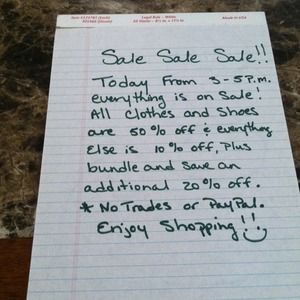 Legal Rule - White
Made in USA
Sale Sale Sale!!
Today From 3-5P.M.
everything is on Sale!
All Clothes and Shoes
are 50% off & everything
Else is 10% off, Plus
bundle and save an
additional 20% off.
* No Trades or PayPal.
Enjoy Shopping!!